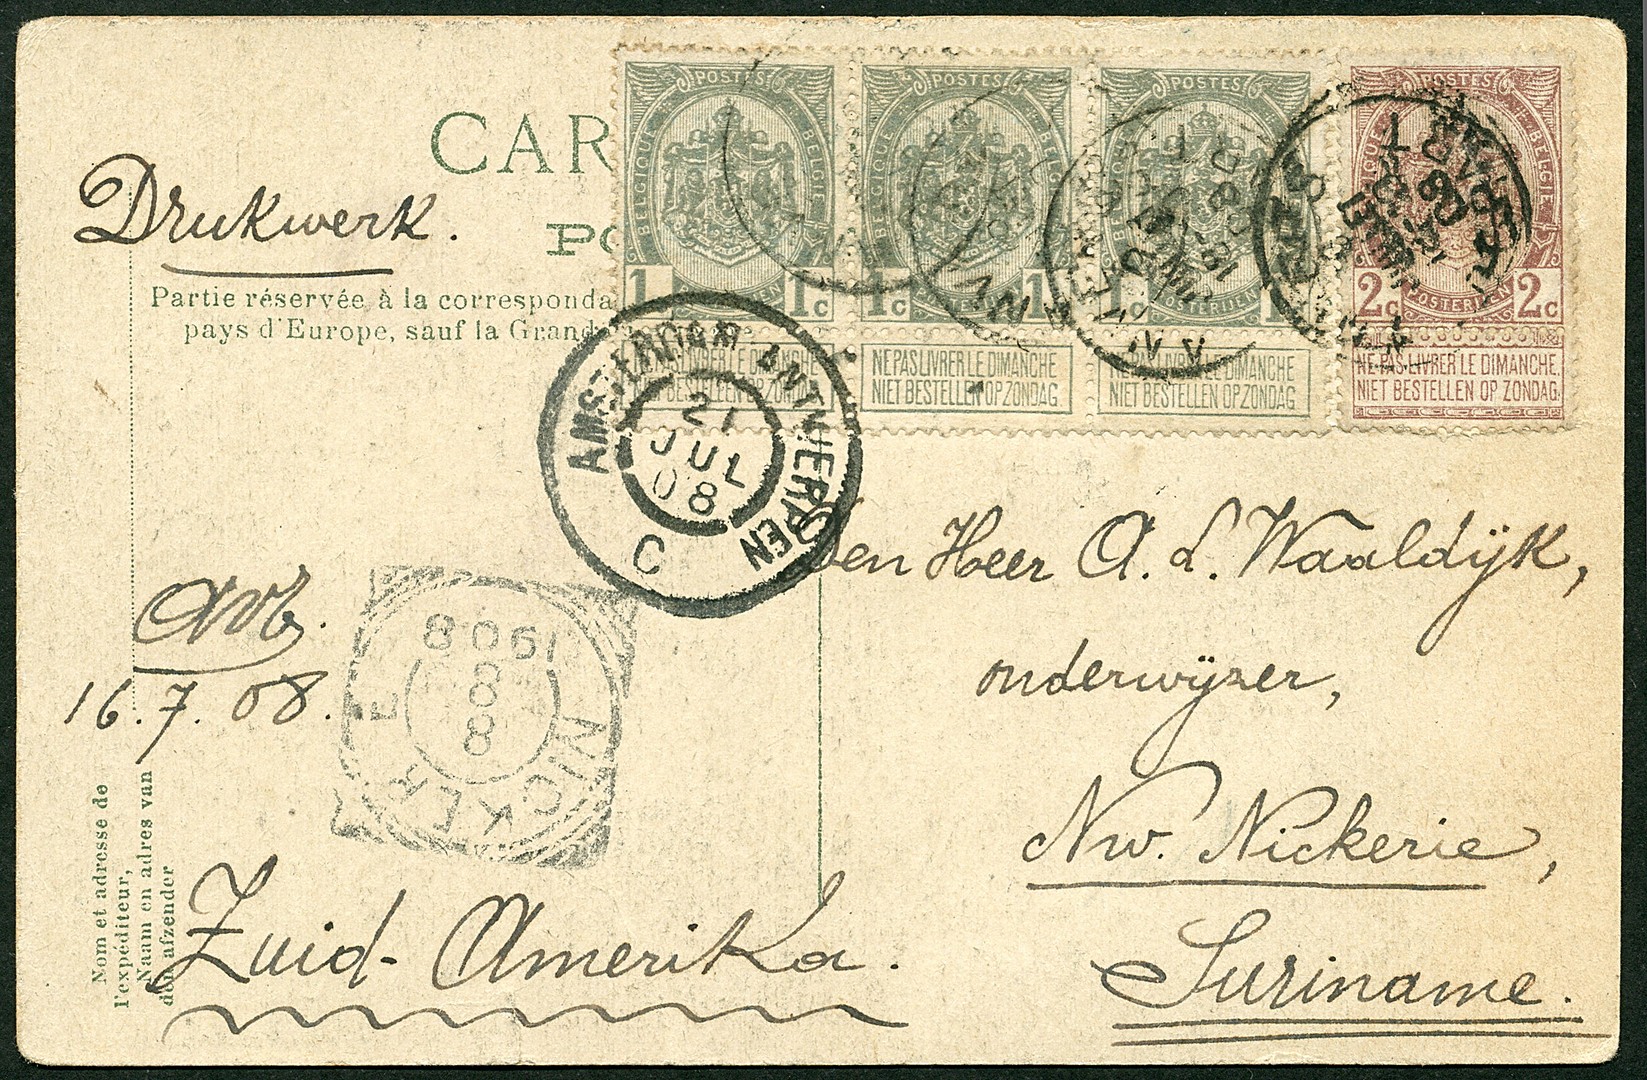 CAR
POSTES POSTES POSTES POSTES
BELGIQUE BELGIË BELGIQUE BELGIË BELGIQUE BELGIË BELGIË
1c 1c 1c 1 1c 1 2c 2c
POSTERIJEN POSTERIJEN POSTERIJEN POSTERIJEN
NE PAS LIVRER LE DIMANCHE
NIET BESTELLEN OP ZONDAG
NE PAS LIVRER LE DIMANCHE
NIET BESTELLEN OP ZONDAG
NE PAS LIVRER LE DIMANCHE
NIET BESTELLEN OP ZONDAG
NE PAS LIVRER LE DIMANCHE
NIET BESTELLEN OP ZONDAG
Drukwerk.
Partie réservée à la corresponda
pays d'Europe, sauf la Grand
AMSTERDAM ANTWERPEN
21
JUL
08
C
Den Heer A. L. Waaldijk,
onderwijzer,
Nw. Nickerie,
Suriname.
16.7.08.
NICKERIE
8
8
1908
Zuid-Amerika.
Nom et adresse de
l'expéditeur,
Naam en adres van
den afzender